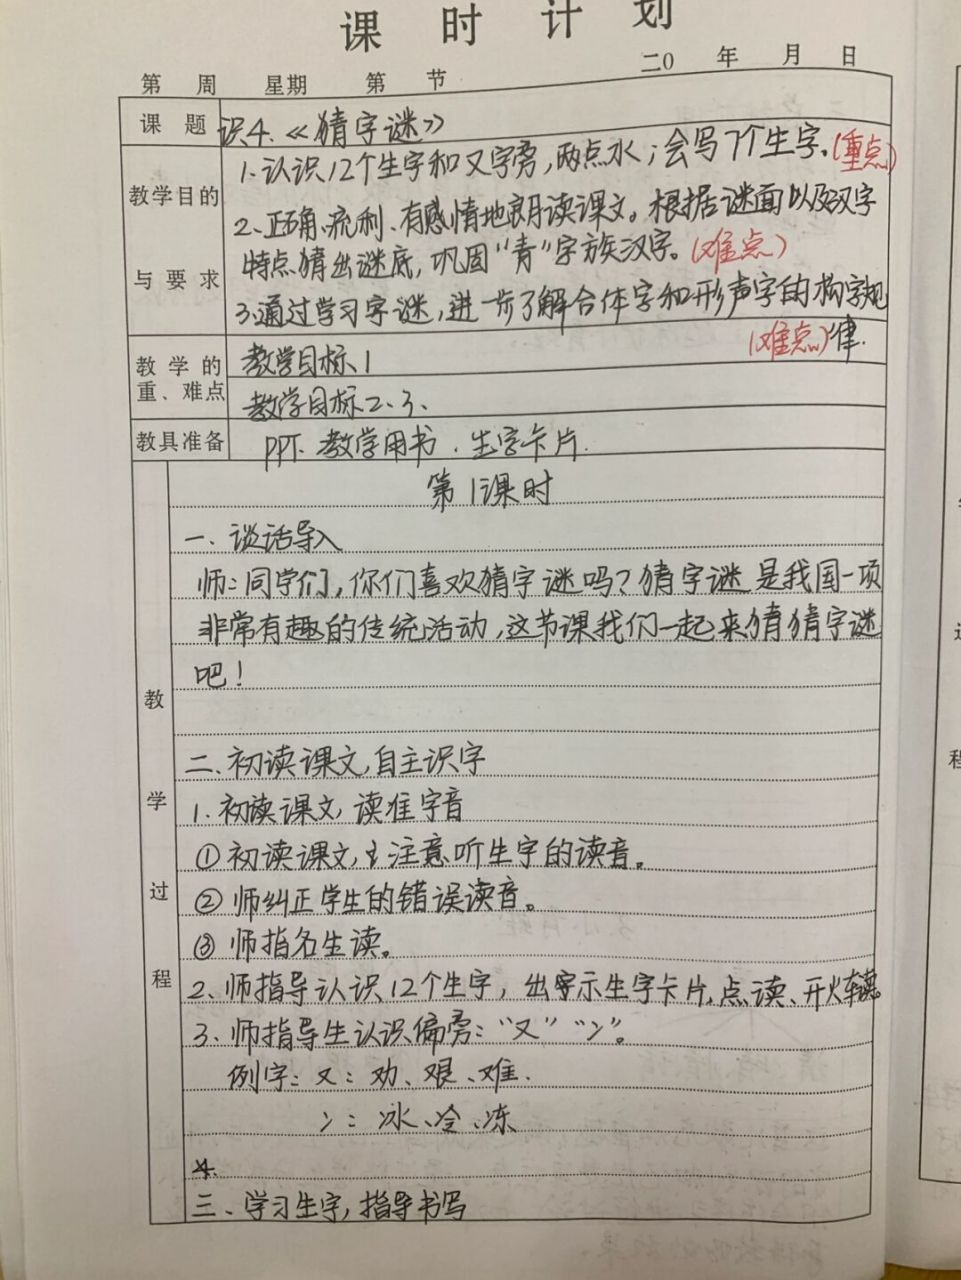 课 时 计 划
二0 年 月 日
第 周 星期 第 节
课 题 识4.《猜字谜》
教学目的
与要求
1.认识12个生字和又字旁,两点水;会写7个生字。(重点)
2、正确、流利、有感情地朗读课文。根据谜面以及汉字
特点猜出谜底,巩固“青”字族汉字。(难点)
3.通过学习字谜,进一步了解合体字和形声字的构字规
(难点)律.
教学的
重、难点
教学目标1
教学目标2、3、
教具准备 PPT. 教学用书、生字卡片.
教学过程
第1课时
一、谈话导入
师:同学们,你们喜欢猜字谜吗?猜字谜是我国一项
非常有趣的传统活动,这节课我们一起来猜猜字谜
吧!
二、初读课文,自主识字
1.初读课文,读准字音
①初读课文,注意听生字的读音。
②师纠正学生的错误读音。
③师指名生读。
2、师指导认识12个生字,出示生字卡片,点读、开火车读
3、师指导生认识偏旁:“又”“冫”。
例字:又:劝、艰、难.
冫:冰、冷、冻
4.
三、学习生字,指导书写